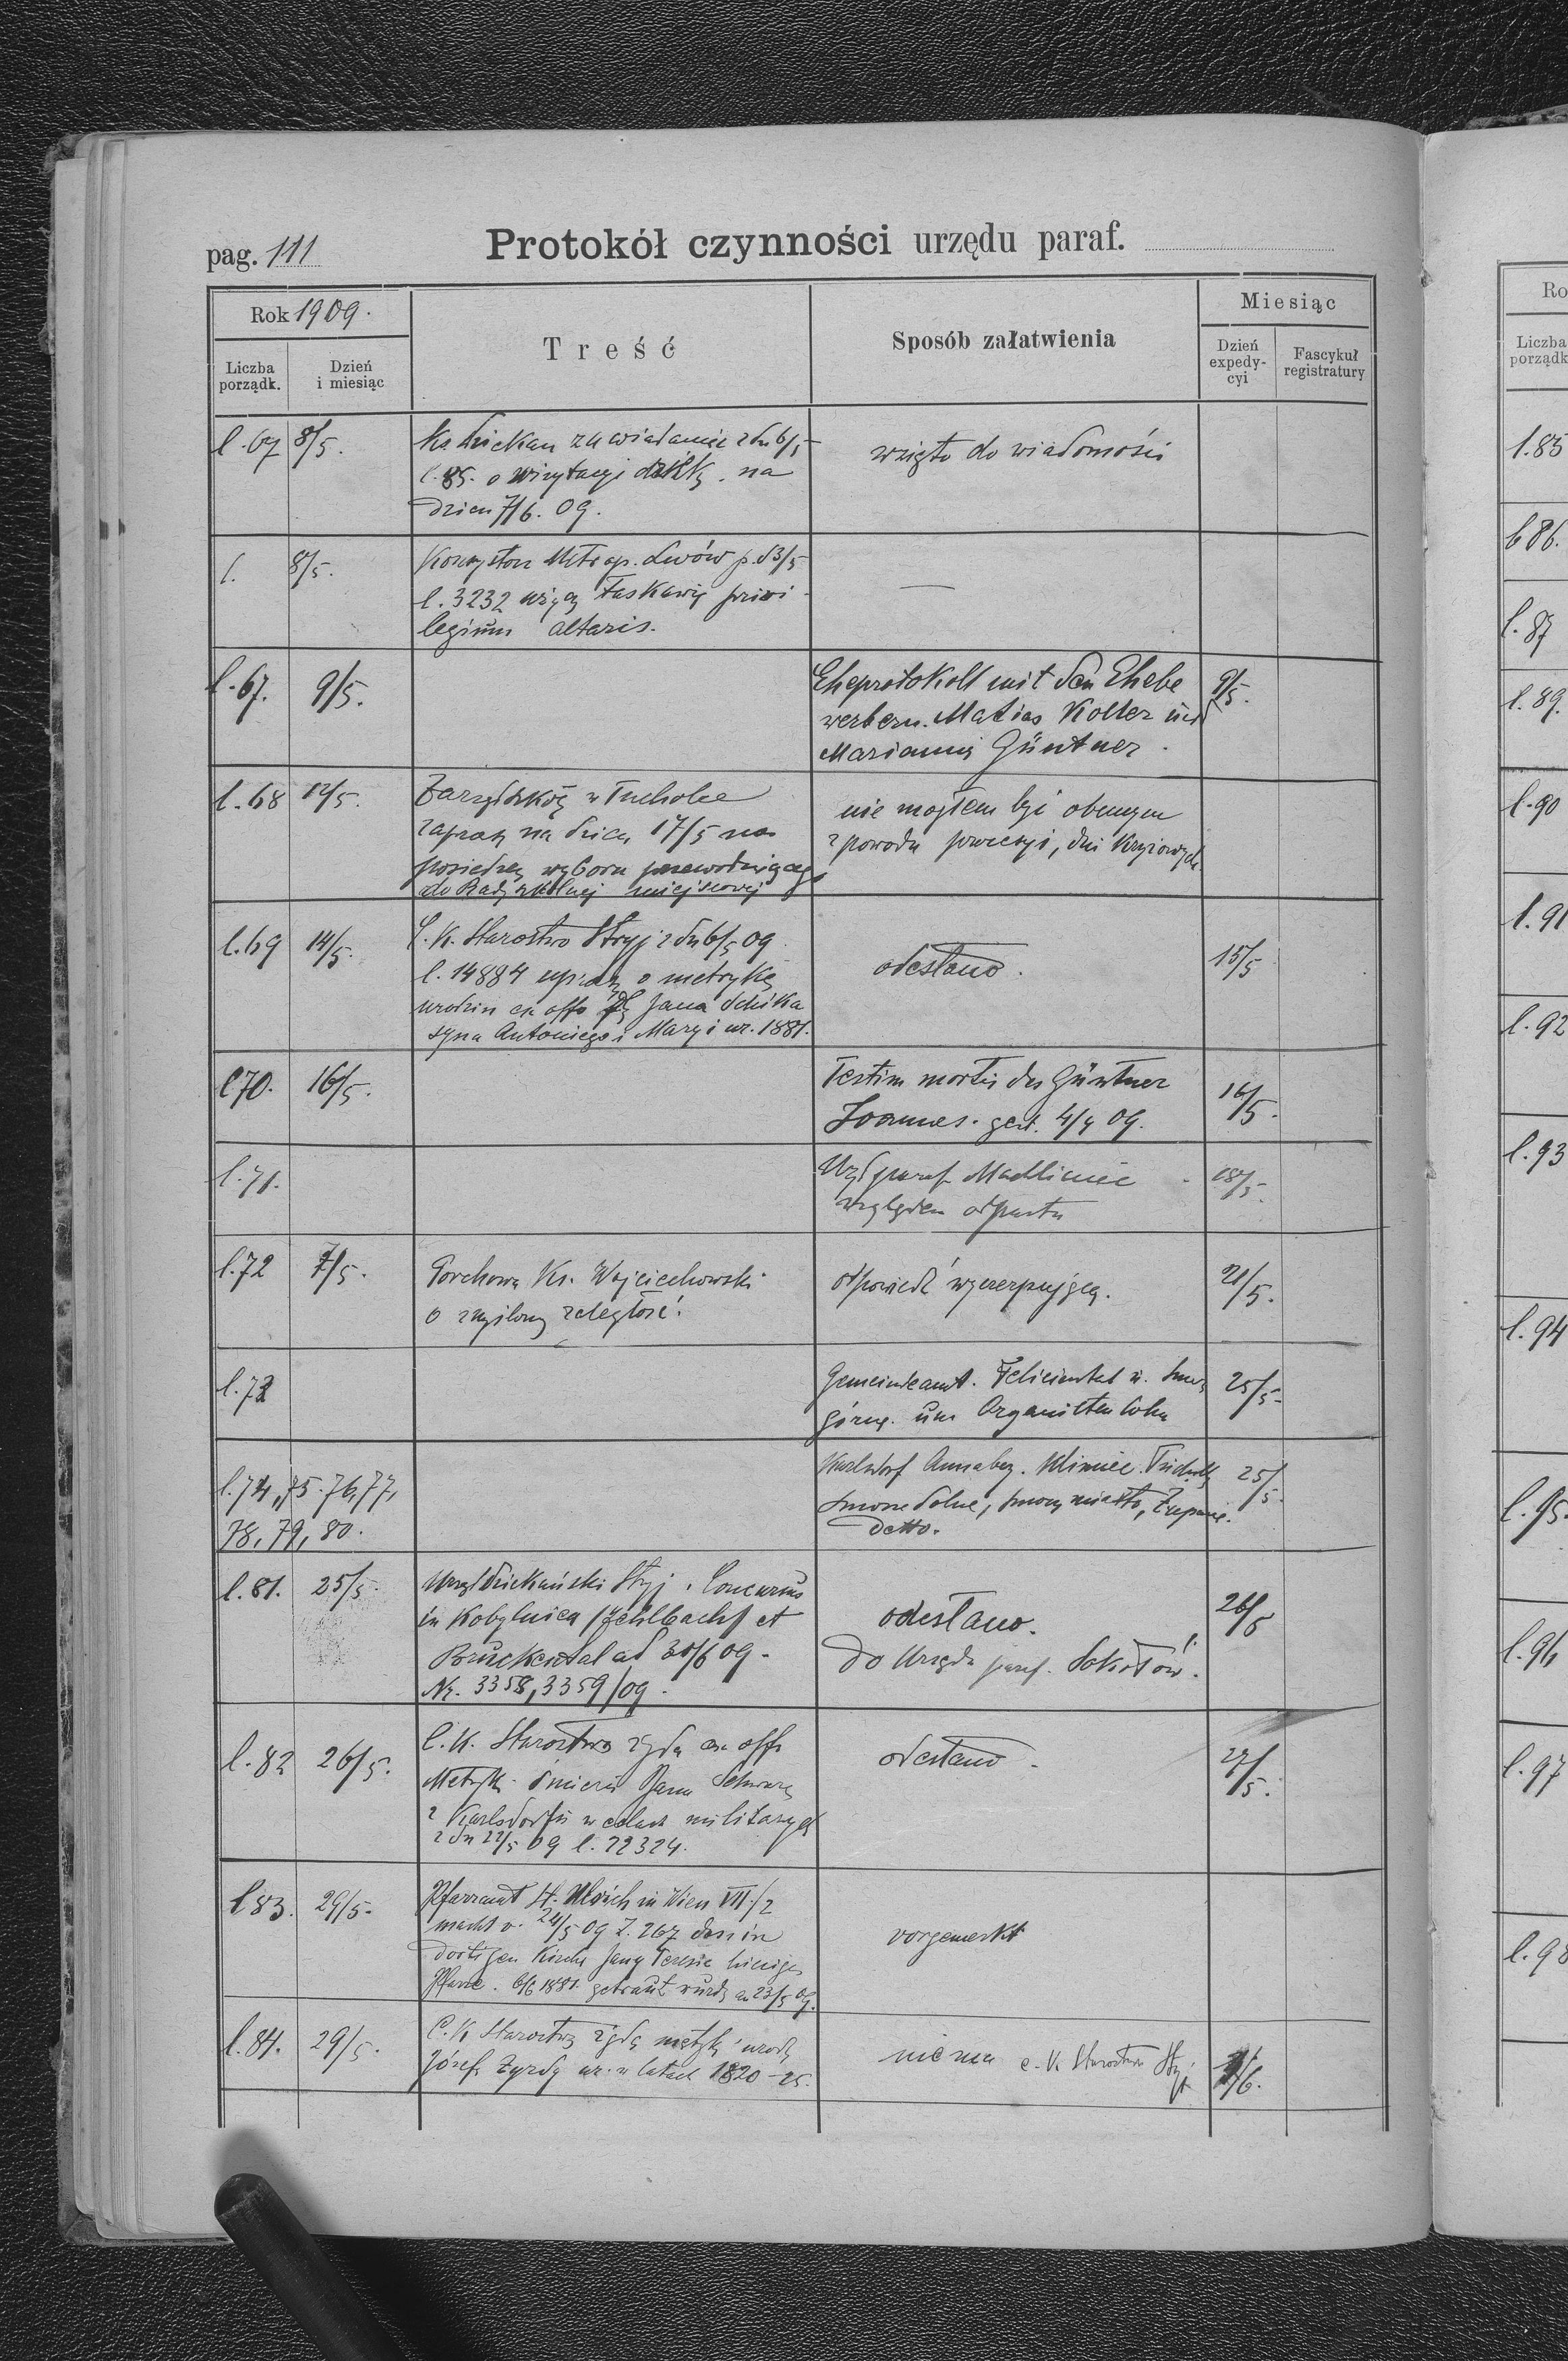 pag. 111
Protokół czynności urzędu paraf.
Rok 1909.
Treść
Sposób załatwienia
Miesiąc
Liczba porządk.
Dzień i miesiąc
Dzień expedy-cyi
Fascykuł registratury
l. 67 8/5.
Ks. Dziekan zawiadamia z dn 6/5
l. 85. o wizytacyi dzkk. na
dzień 7/6. 09.
wzięto do wiadomości
l. 8/5.
Konsystorz Metrop. Lwów p. d 3/5
l. 3232 łaskawie privi
legium altaris.
—
l. 67. 9/5.
Eheprotokoll mit den Ehebe
werbern. Matias Koller und
Marianna Güntner.
9/5.
l. 68 12/5.
Zarząd szkoły w Tucholce
zaprasza na dzień 17/5 na
posiedzen wyboru przewodniczącego
do Rady szkolnej miejscowej
nie mogłem być obecnym
z powodu procesyi, dni krzyżowych
l. 69 14/5.
C. K. Starostwo Stryj z dn 6/5 09
l. 14884 uprasza o metrykę
urodzin ex offo Jana Schika
syna Antoniego i Maryi ur. 1881.
odesłano.
15/5
l 70. 16/5.
Testim mortis des Güntner
Joannes. gest. 4/4 09.
16/5.
l. 71.
Urząd paraf. Machliniec
względem odpustu
18/5.
l. 72 7/5.
Ks. Wojciechowski
o zaległość.
odpowiedź wyczerpującą.
21/5.
l. 73
Gemeindeamt. Felicienthal u. Smorz
górne. um Organistenlohn
25/5
l. 74, 75. 76, 77,
78, 79, 80.
Karlsdorf Annaberg. Klimiec. Tucholka
Smorze dolne, Smorze miasto, Żupanie.
Detto.
25/5.
l. 81. 25/5.
Urząd dziekański Stryj. Concursus
in Kobylnica et
Bruckental ad 30/6 09.
Nr. 3358, 3359/09.
odesłano.
Do Urzędu paraf. Sokołów.
26/5
l. 82 26/5.
C. K. Starostwo żąda ex offo
Metryki śmierci Jana Schwarz
z Karlsdorfu w celach militarnych
z dn 22/5 09 l. 22324.
odesłano.
27/5.
l 83. 29/5.
Pfarramt St. Ulrich in Wien VII./2
macht v. 24/5 09 Z. 267 dass in
dortigen Kirche Jany Teresie hiesigen
Pfarre. 6/6 1881. getraut wurde am 23/5 09.
vorgemerkt
l. 84. 29/5.
C. K. Starostwo żąda metrykę urodz
Józef. Żyrdy ur. w latach 1820-25.
niema c. k. Starostwo Stryj
1/6.
Ro
Liczba
porządk
l. 85
l 86.
l. 87
l. 89.
l. 90
l. 91
l. 92
l. 93
l. 94
l. 95.
l. 96
l. 97
l. 98